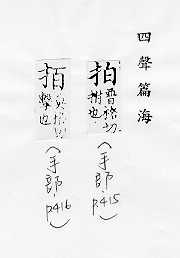 四聲篇海
拍
普格切
拊也
(手部
p415)
擊也
(手部
p416)